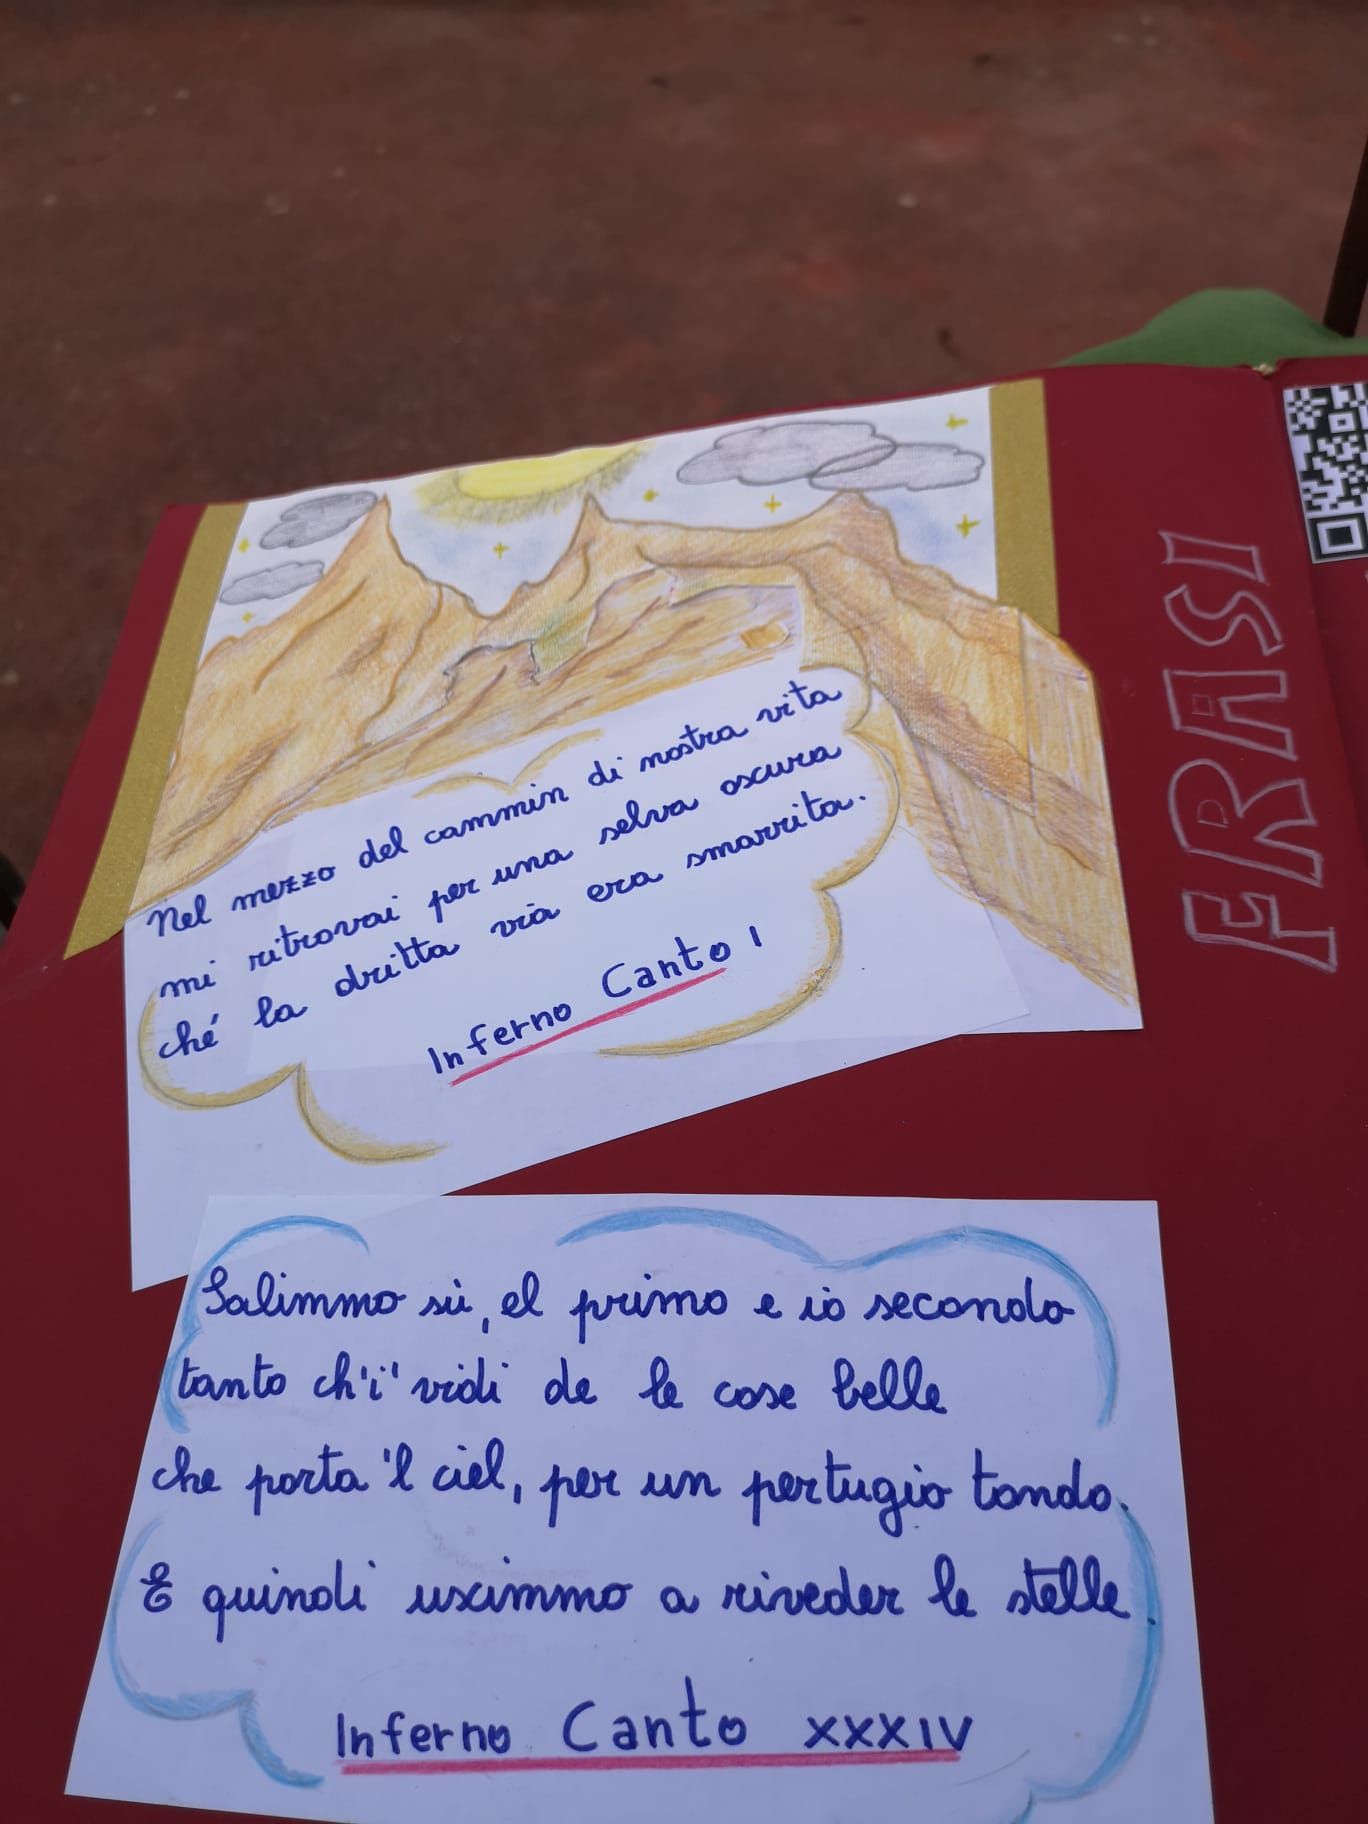 Nel mezzo del cammin di nostra vita
mi ritrovai per una selva oscura
ché la dritta via era smarrita.
Inferno Canto I
FRASI
Salimmo sù, el primo e io secondo
tanto ch'i' vidi de le cose belle
che porta 'l ciel, per un pertugio tondo.
E quindi uscimmo a riveder le stelle.
Inferno Canto XXXIV